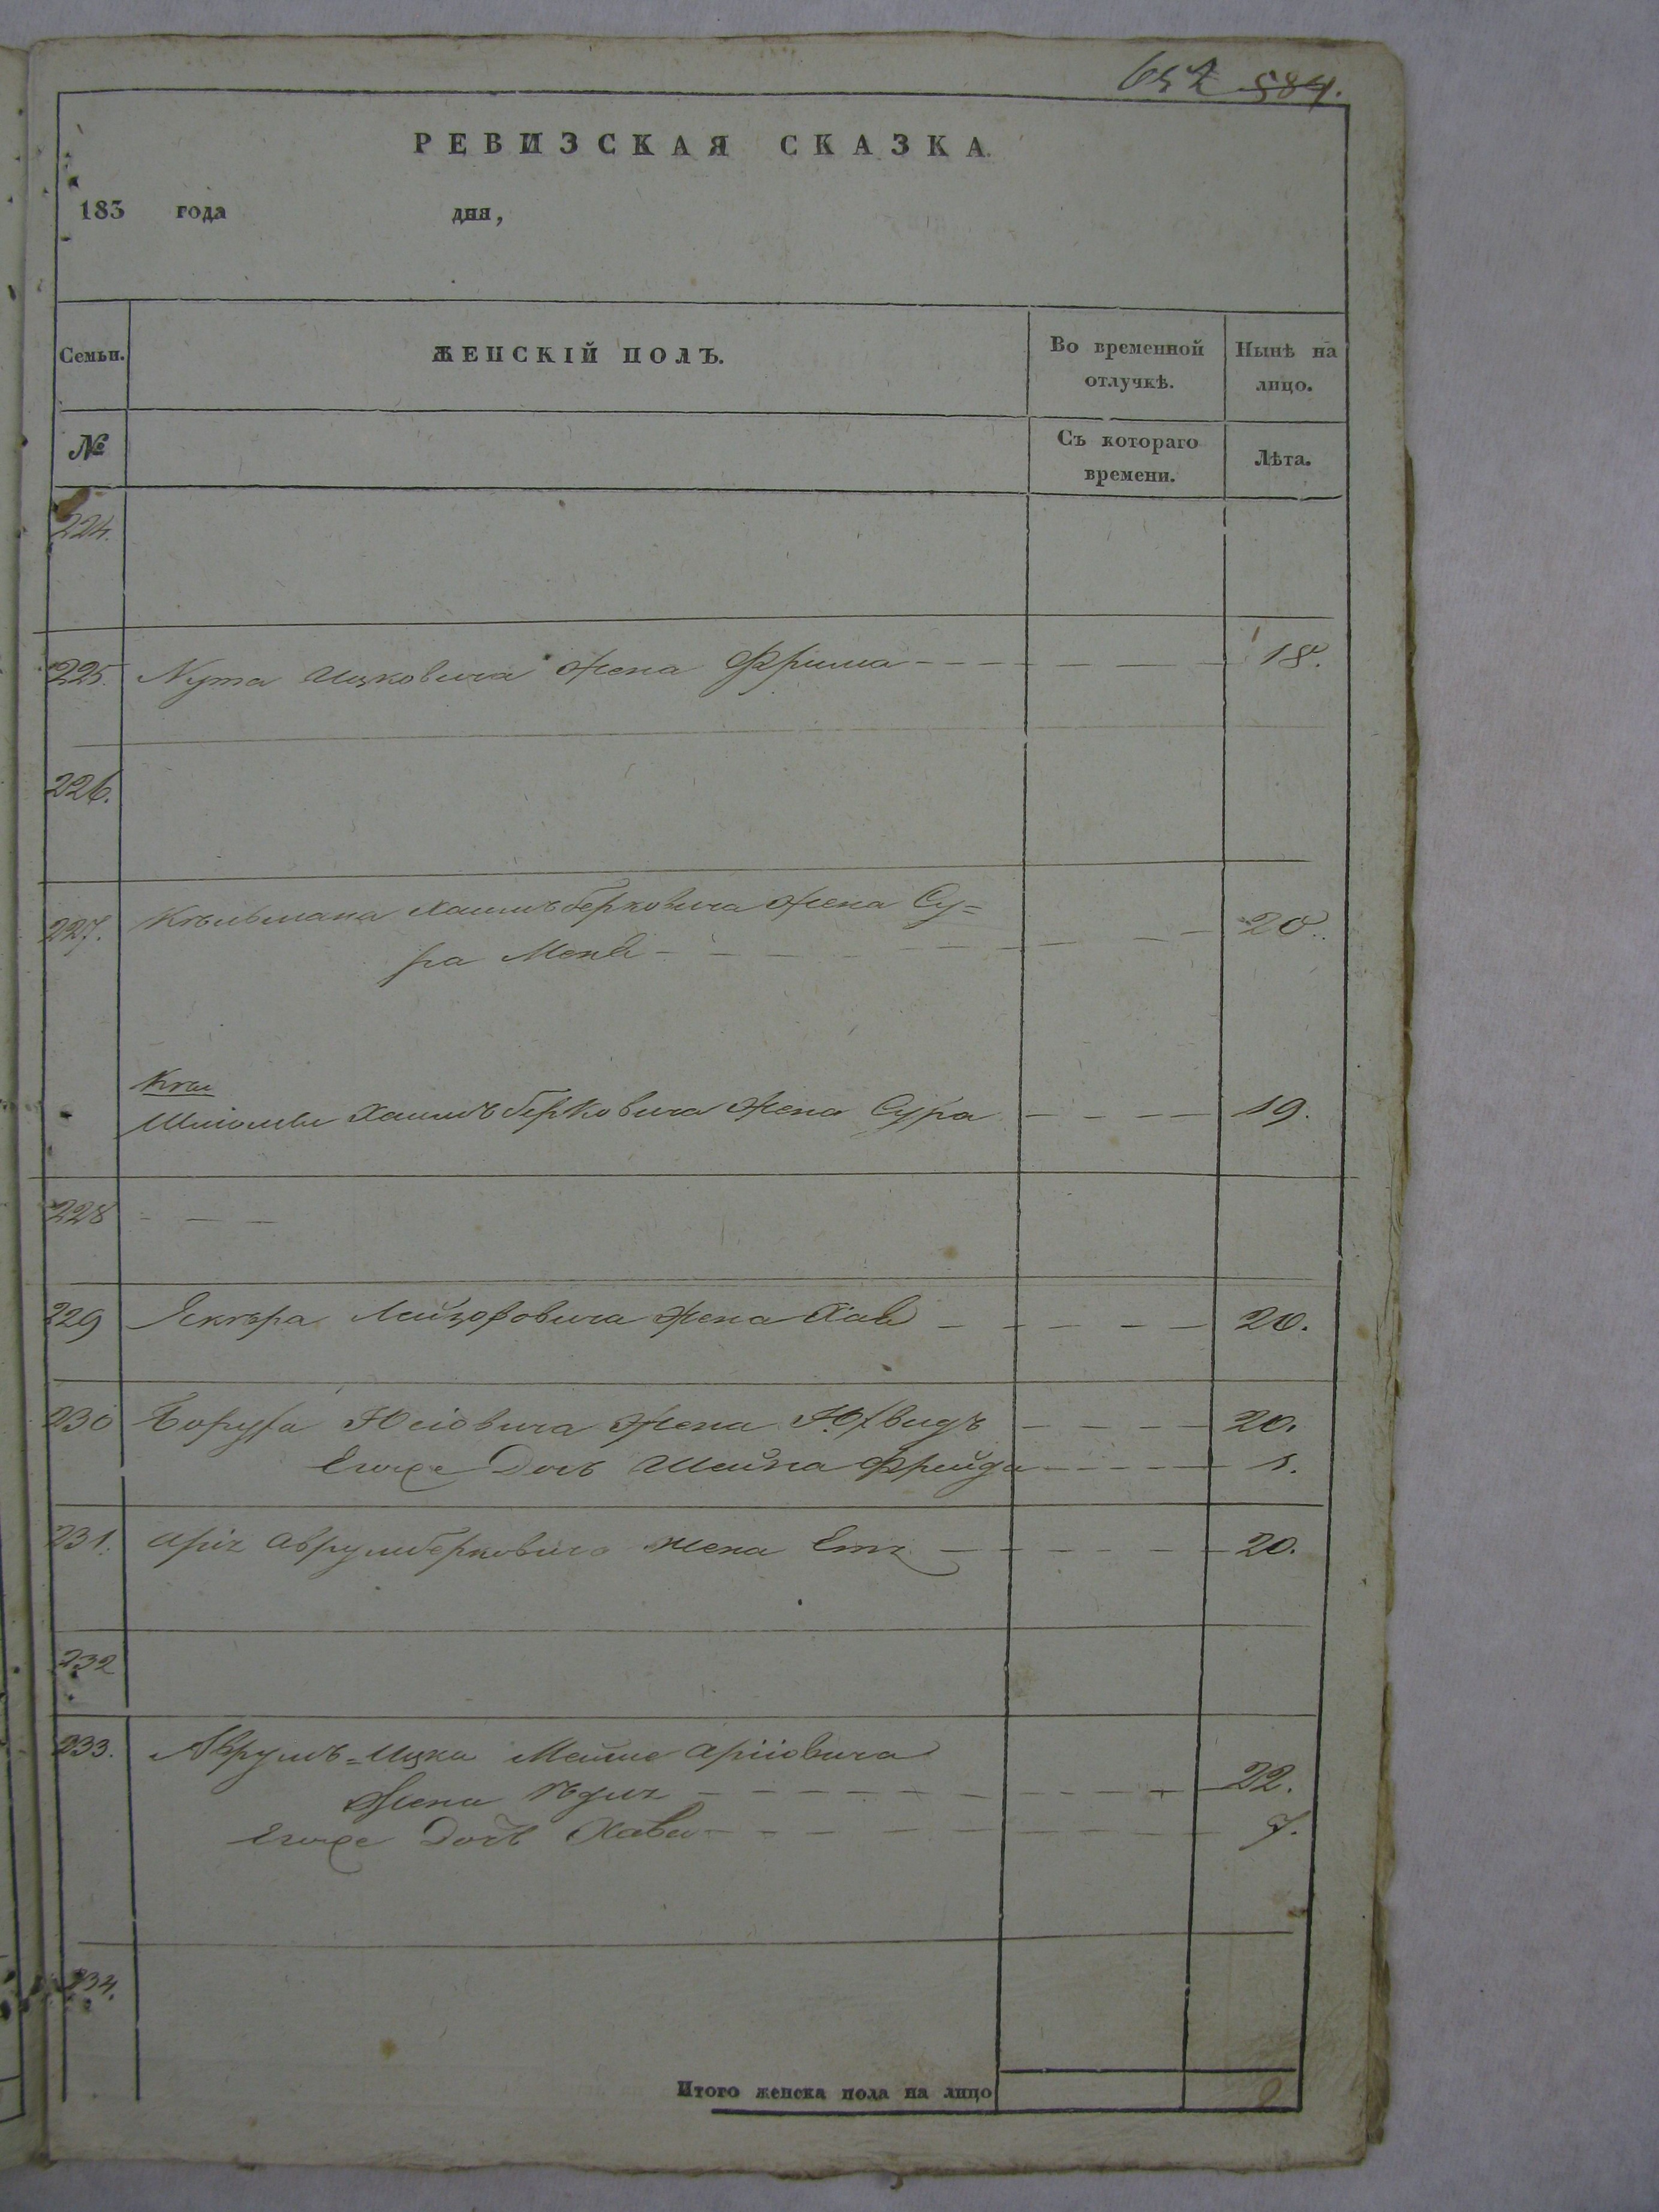 657 584.
РЕВИЗСКАЯ СКАЗКА.
183 года дня,
Семьи. ЖЕНСКІЙ ПОЛЪ. Во временной отлучкѣ. Нынѣ на лицо.
№ Съ котораго времени. Лѣта.
224.
225. Нута Ицковича жена Фрима 18.
226.
227. Кѣльмана Хаимъ берковича жена Су=
ра 20.
Хаимъ берковича жена Сура 19.
228
229 жена Хая 20.
230 Боруха жена 20.
Егоже Дочь Шейна Фрейда 1.
231. Арія Аврумберковича жена 20.
232
233. Аврумъ=Ицка Аріовича
Жена 22.
Егоже Дочь Хава
234.
Итого женска пола на лицо